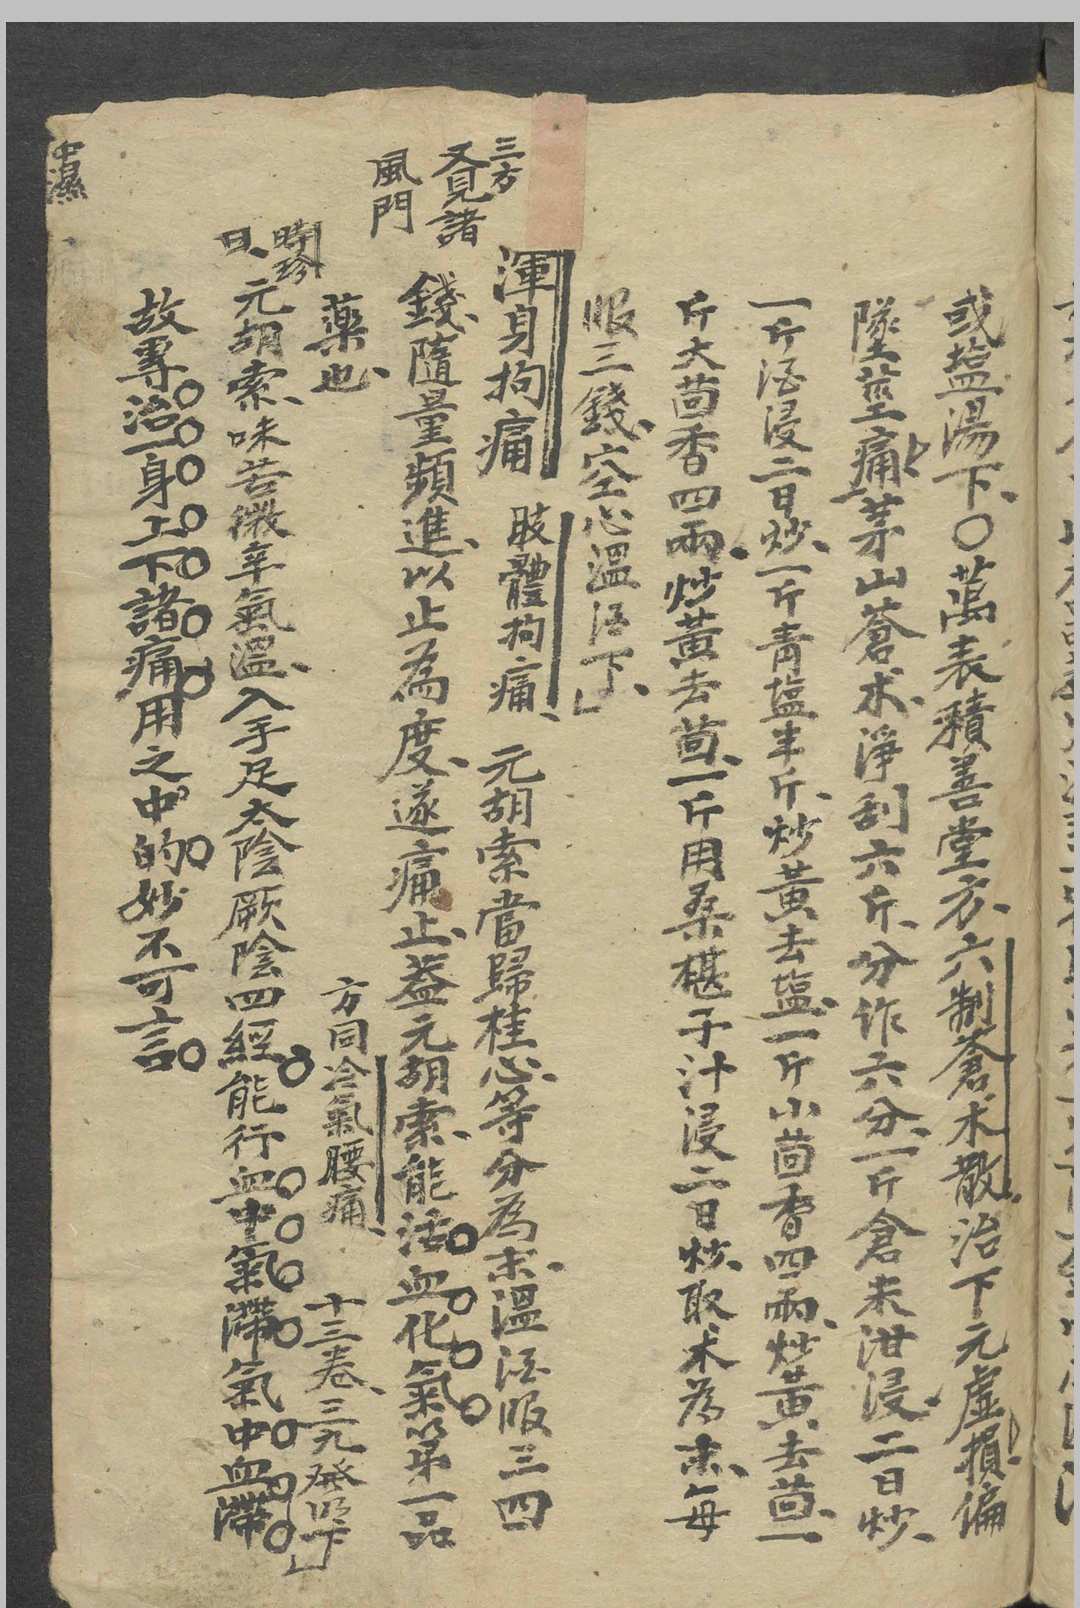 或塩湯下、〇萬表積善堂方、六制蒼术散、治下元虛損、偏
墜莖痛、茅山蒼术、淨刮六斤、分作六分、一斤倉米泔浸二日炒、
一斤酒浸二日炒、一斤青塩半斤、炒黃去塩、一斤小茴香四兩、炒黃去茴、一
斤大茴香四兩、炒黃去茴、一斤用桑椹子汁浸二日炒、取术為末、每
服三錢、空心溫酒下、
三方
又見諸
風門
渾身拘痛 肢體拘痛、元胡索當歸桂心、等分為末、溫酒服三四
錢、隨量頻進、以止為度、遂痛止、蓋元胡索、能活血化氣第一品
藥也、 方同冷氣腰痛、十三卷、三九發以下
時珍
曰、元胡索、味苦微辛氣溫、入手足太陰厥陰四經、能行血中氣滯氣中血滯
故專治一身上下諸痛用之中的妙不可言
中濕